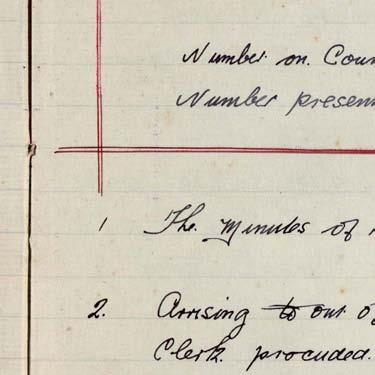 Number on. Coun
Number presen
1 The Minutes of
2. Arrising to out o
Clerk procuded.